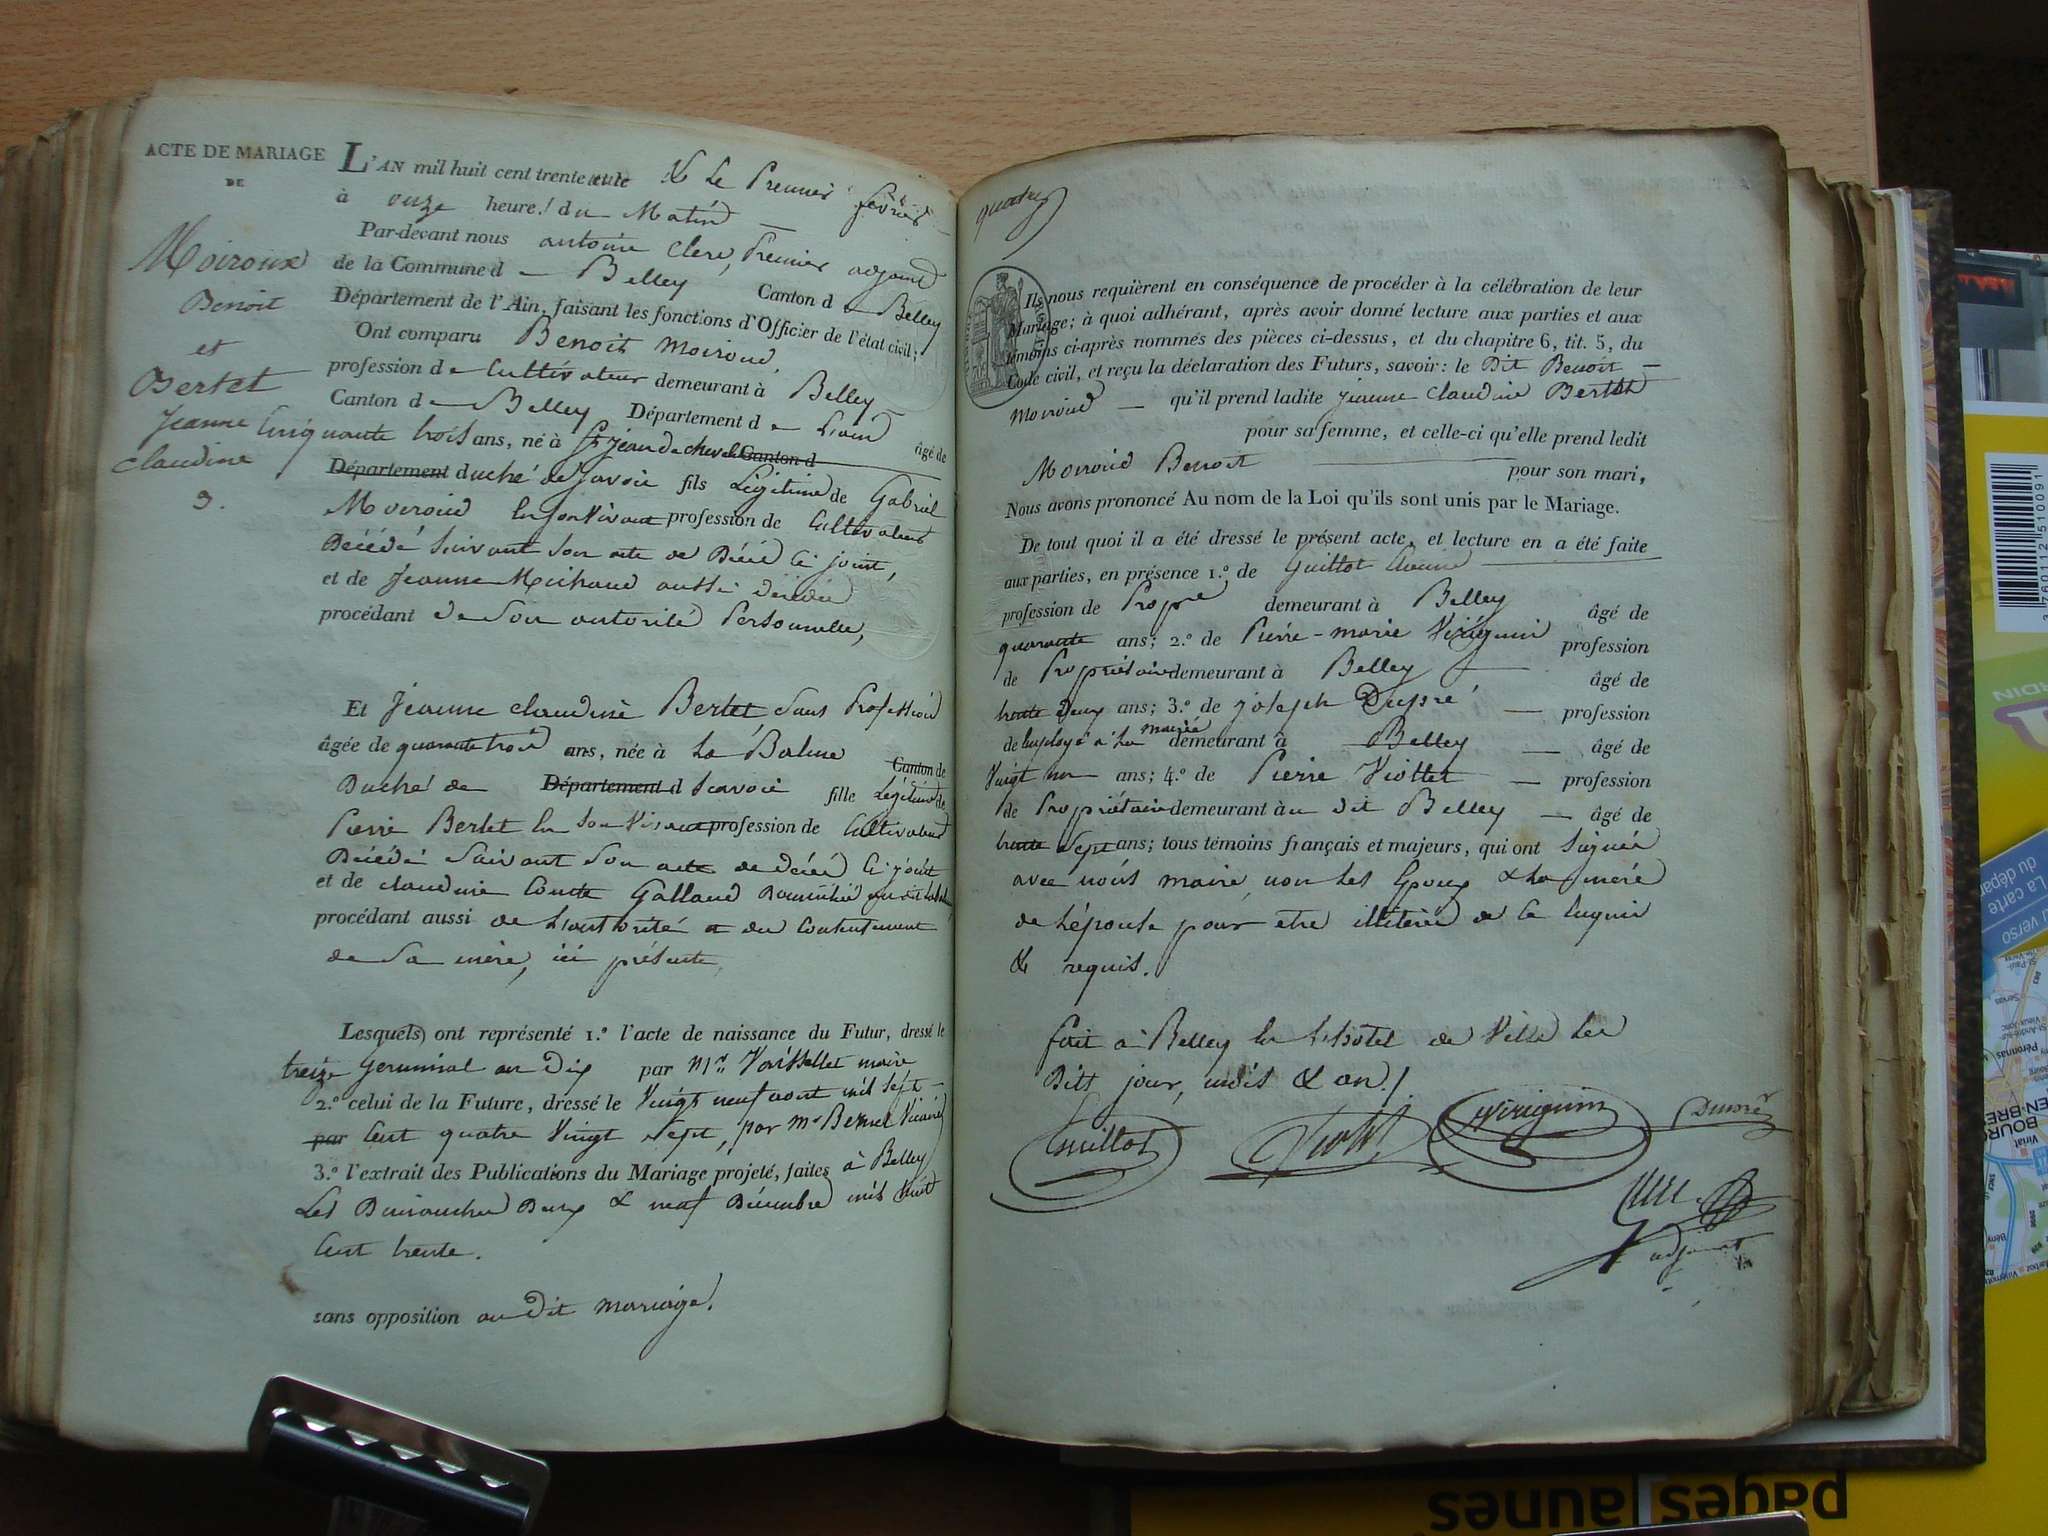 ACTE DE MARIAGE
DE
Moiroux
Benoit
et
Bertet
Jeanne
Claudine
3.
L'AN mil huit cent trente et un & Le Premier février
à onze heures du Matin
Par-devant nous antoine Clerc, Premier adjoint
de la Commune de Belley Canton de Belley
Département de l'Ain, faisant les fonctions d'Officier de l'état civil;
Ont comparu Benoit Moiroud
profession de Cultivateur demeurant à Belley
Canton de Belley Département de L'ain âgé de
Cinquante trois ans, né à St jean de chevelu Canton d
Département duché de Savoie fils Légitime de Gabriel
Moiroud En son Vivant profession de Cultivateur
Décédé Suivant son acte de Décès Ci joint,
et de Jeanne Michaud aussi Décédée
procédant de Son autorité Personnelle,
Et Jeanne Claudine Bertet Sans Profession
âgée de quarante trois ans, née à La Balme Canton de
Duché de Département d Savoie fille Légitime de
Pierre Bertet En Son Vivant profession de Cultivateur
Décédé Suivant Son acte de décès Ci joint
et de Claudine Comte Galland Domiciliée
procédant aussi de L'autorité et du Contentement
de Sa mère, ici présente,
Lesquels ont représenté 1.º l'acte de naissance du Futur, dressé le
treize Germinal an Dix par Mr. maire
2.º celui de la Future, dressé le Vingt neuf aout mil Sept
par Cent quatre Vingt Sept, par Mr Vicaire
3.º l'extrait des Publications du Mariage projeté, faites à Belley
Les Dimanches Deux & neuf Décembre mil huit
Cent trente.
sans opposition au Dit mariage.
quatre
Ils nous requièrent en conséquence de procéder à la célébration de leur
Mariage; à quoi adhérant, après avoir donné lecture aux parties et aux
témoins ci-après nommés des pièces ci-dessus, et du chapitre 6, tit. 5, du
Code civil, et reçu la déclaration des Futurs, savoir: le Dit Benoit
Moiroud qu'il prend ladite jeanne Claudine Bertet
pour sa femme, et celle-ci qu'elle prend ledit
Moiroud Benoit pour son mari,
Nous avons prononcé Au nom de la Loi qu'ils sont unis par le Mariage.
De tout quoi il a été dressé le présent acte, et lecture en a été faite
aux parties, en présence 1.º de Guillot
profession de Propre demeurant à Belley âgé de
quarante ans; 2.º de Pierre-marie Viriguin profession
de Propriétaire demeurant à Belley âgé de
trente Deux ans; 3.º de joseph Dupré profession
de Employé à La mairie demeurant à Belley âgé de
Vingt un ans; 4.º de Pierre Viottet profession
de Propriétaire demeurant au dit Belley âgé de
trente Sept ans; tous témoins français et majeurs, qui ont Signés
avec nous maire non Les Epoux & La mère
de L'épouse pour etre illitérés de Ce Enquis
& requis.
fait à Belley En L'hotel de Ville Les
Dits jour, mois & an./
Guillot Viottet Viriguin Dupré
Clerc
adjoint
3 760112 510091
La carte
du dépar
verso
Péronnas
BOURG
EN-BRE
Viriat
pages jaunes